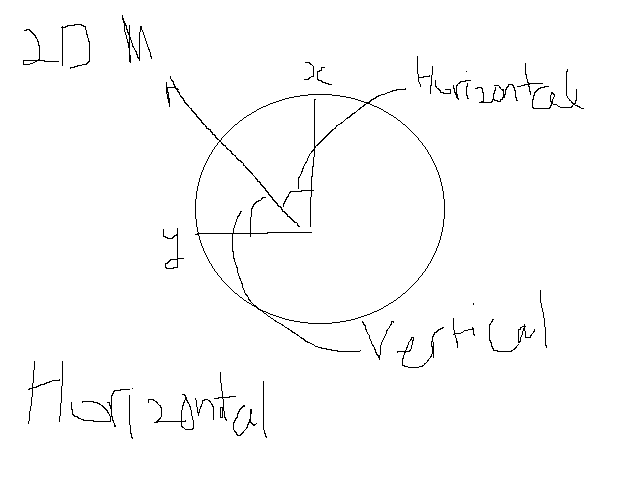 2D M
x
Horizontal
A
y
Vertical
Horizontal